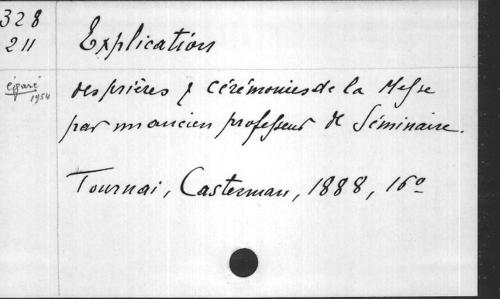 328
211
Explication
égaré
1954
des prières & cérémonies de la Messe
par un ancien professeur de Séminaire.
Tournai, Casterman, 1888, 16°